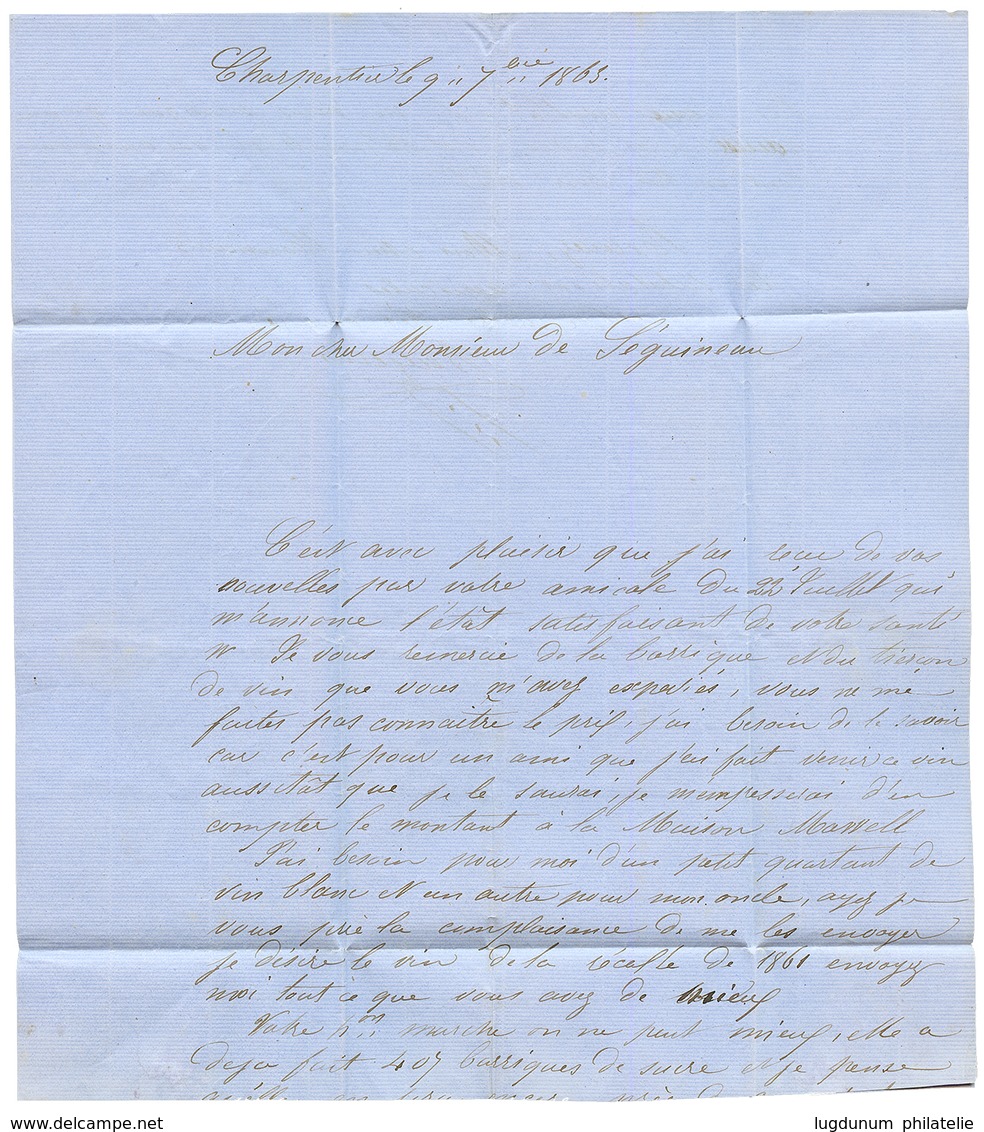 Charpentier le 9 " 7bre " 1863.
Mon cher Monsieur de Séguineau
C'est avec plaisir que j'ai reçu de vos
nouvelles par votre amicale du 22 Juillet qui
m'annonce l'état satisfaisant de votre santé
Je vous remercie de la barrique et du tierçon
de vin que vous m'avez expediés, vous ne me
faites pas connaître le prix, j'ai besoin de le savoir
car c'est pour un ami que j'ai fait venir ce vin
aussitôt que je le saurai, je m'empresserai d'en
compter le montant à la Maison Maxwell
J'ai besoin pour moi d'un petit quartant de
vin blanc et un autre pour mon oncle, ayez je
vous prie la complaisance de me les envoyer
je désire le vin de la récolte de 1861 envoyez
moi tout ce que vous avez de mieux
Votre hon marche on ne peut mieux, elle a
deja fait 407 barriques de sucre et je pense
qu'elle en fera encore près de
lugdunum philatelie